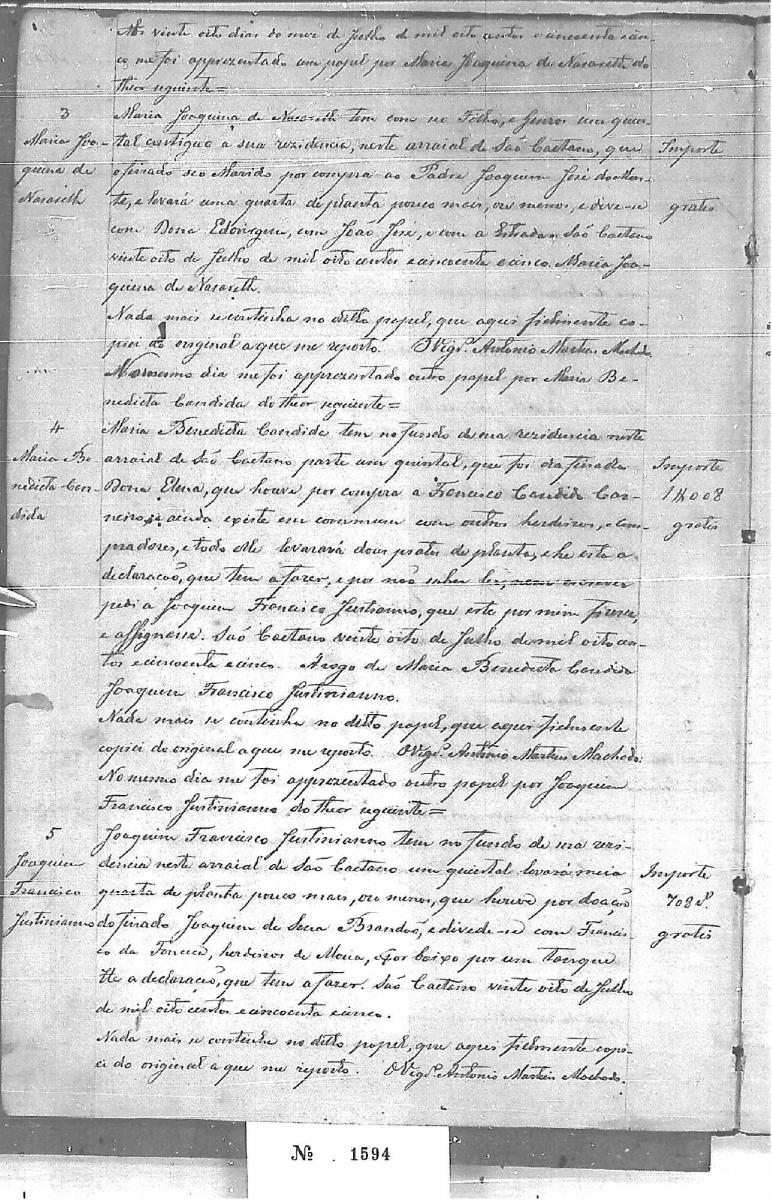 Aos vinte oito dias do mez de Julho de mil oito centos e cincoenta e cin-
co me foi apprezentado um papel por Maria Joaquina de Nasareth do
theor seguinte =
3
Maria Joa-
quina de
Nasareth
Maria Joaquina de Nasareth tem com seo Filho, e Genros um quin-
tal contiguo a sua rezidencia, neste arraial de São Caetano, que
o finado seo Marido por compra ao Padre Joaquim José do Mon-
te, e levará uma quarta de planta pouco mais, ou menos, e divide-se
com Dona Edovirgem, com João José, e com a Estrada. São Caetano
vinte oito de Julho de mil oito centos e cincoenta e cinco. Maria Joa-
quina de Nasareth.
Importe
gratis
Nada mais se continha no ditto papel, que aqui fielmente co-
piei do original a que me reporto. O Vigr.º Antonio Martins Machado.
No mesmo dia me foi apprezentado outro papel por Maria Be-
nedicta Candida do theor seguinte =
4
Maria Be-
nedicta Can-
dida
Maria Benedicta Candida tem no fundo de sua rezidencia neste
arraial de São Caetano parte um quintal, que foi da finada
Dona Elena, que houve por compra a Francisco Candido Car-
neiro, e ainda existe em commum com outros herdeiros, e com-
pradores, e todo elle levará dous pratos de planta, e he esta a
declaração, que tem a fazer, e por não saber ler, nem escrever
pedi a Joaquim Francisco Justinianno, que este por mim fizesse,
e assignasse. São Caetano vinte oito de Julho de mil oito cen-
tos e cincoenta e cinco. A rogo de Maria Benedicta Candida
Joaquim Francisco Justinianno.
Importe
1$008
gratis
Nada mais se continha no ditto papel, que aqui fielmente
copiei do original a que me reporto. O Vigr.º Antonio Martins Machado.
No mesmo dia me foi apprezentado outro papel por Joaquim
Francisco Justinianno do theor seguinte =
5
Joaquim
Francisco
Justinianno
Joaquim Francisco Justinianno tem no fundo de sua rezi-
dencia neste arraial de São Caetano um quintal levará meia
quarta de planta pouco mais, ou menos, que houve por doação
do finado Joaquim de Sena Brandão, e divede-se com Francis-
co da Fonceca, herdeiros de Moura, e por baixo por um tanque
He a declaração, que tem a fazer. São Caetano vinte oito de Julho
de mil oito centos e cincoenta e cinco.
Importe
708 r.s
gratis
Nada mais se continha no ditto papel, que aqui fielmente copi-
ei do original a que me reporto. O Vigr.º Antonio Martins Machado.
Nº 1594